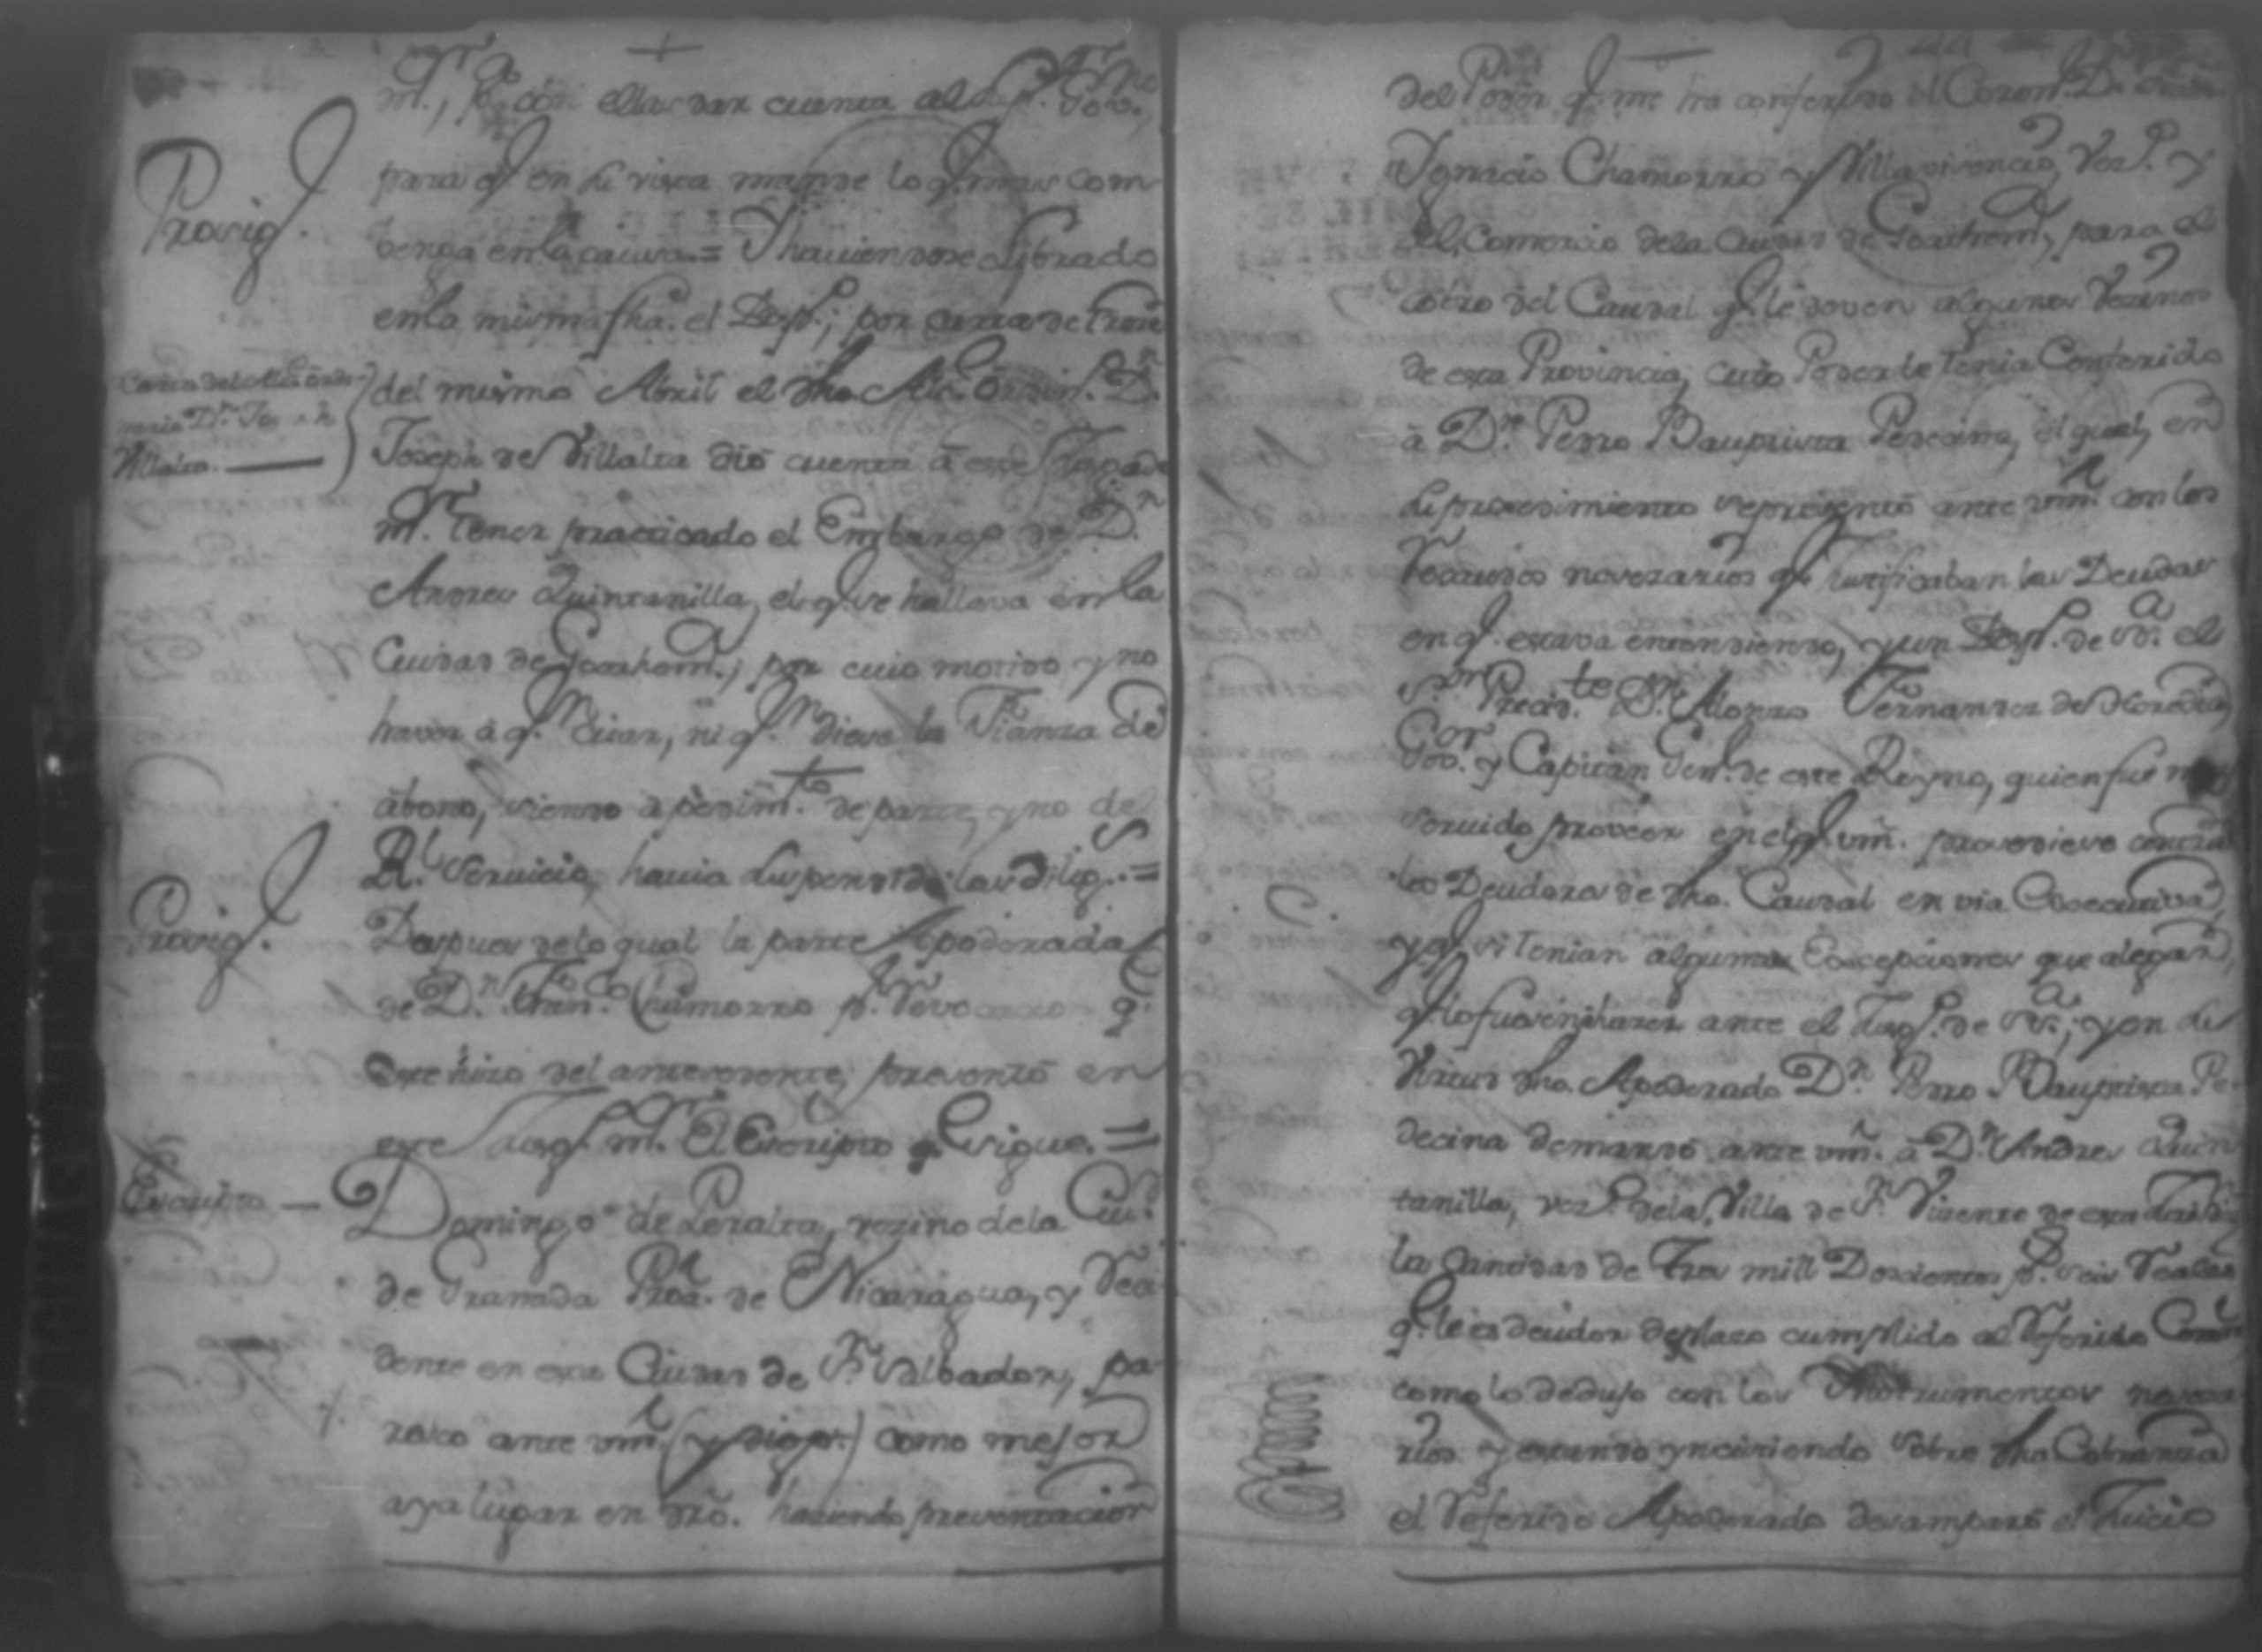 m.ª, p.ª con ellas dar cuenta al Sup.ʳ Gov.ⁿᵒ
Prosig.
para q.ᵉ en su vista mande lo q.ᵉ mas com
benga en la causa = Y haviendose Librado
en la misma fha. el Desp.º; por carta de
Carta del Alc.ᵉ ordi-
nario D.ⁿ Joseph
Villalta.
del mismo Abril el dho. Alc.ᵉ Ordin.º D.ⁿ
Joseph de Villalta dió cuenta á este Juzgado
m.ʳ tener practicado el Embargo de D.ⁿ
Andres Quintanilla, el q.ᵉ se hallava en la
Ciudad de Goathem.ª; por cuio motivo y no
haver á q.ⁿ Citar, ni q.ⁿ diese la Fianza de
abono, siendo á pedim.ᵗᵒ de parte, y no del
R.ˡ Servicio, havia suspendido las dilig.ˢ =
Prosig.
Despues de lo qual la parte Apoderada
de D.ⁿ Fran.ᶜᵒ Chamorro p.ʳ revocacion q.ᵉ
este hizo del antecedente, presentó en
este Juzg.º m.ʳ El Escripto q.ᵉ sigue. =
Escripto —
Domingo de Peralta, vezino de la Ciu.ᵈ
de Granada Pro.ª de Nicaragua, y Resi
dente en esta Ciudad de S.ⁿ Salbador, pa-
rezco ante vm. (y digo) como mejor
aya lugar en dró. haziendo presentacion
del Poder q.ᵉ me ha conferido el Coron.ˡ D.ⁿ
Ygnacio Chamorro y Villavicencio, Vez.º y
del Comercio de la Ciudad de Goathem.ª, para el
cobro del Caudal q.ᵉ le deven algunos Vezinos
de esta Provincia, cuio Poder lo tenia Conferido
á D.ⁿ Pedro Bauptista Pedecina, el qual, en
su procedimiento se presentó ante vm. con los
Recaudos necesarios q.ᵉ justificaban las Deudas
en q.ᵉ estava entendiendo, y un Desp.º de S.ª el
S.ᵒʳ Presid.ᵗᵉ D.ⁿ Alonzo Fernandez de Heredia,
Gov.ᵒʳ y Capitan Gen.ˡ de este Reyno, quien fue
servido proveer en el q.ᵉ vm. procediese contra
los Deudores de dho. Caudal en via Executiva
y q.ᵉ si tenian algunas Excepciones que alegar,
q.ᵉ lo fuesen á hazer ante el Juzg.º de S.ª; y en su
Virtud dho. Apoderado D.ⁿ Pedro Bauptista Pe-
decina demandó ante vm. á D.ⁿ Andres Quin
tanilla, vez.º de la Villa de S.ⁿ Vizente de esta
la Cantidad de Tres mill Doscientos p.ˢ seis Reales
q.ᵉ le es deudor de plazo cumplido al Referido
como lo dedujo con los Ynstrumentos necesa
rios. y estando ynsistiendo sobre dha. Cobranza
el Referido Apoderado desamparó el Juicio